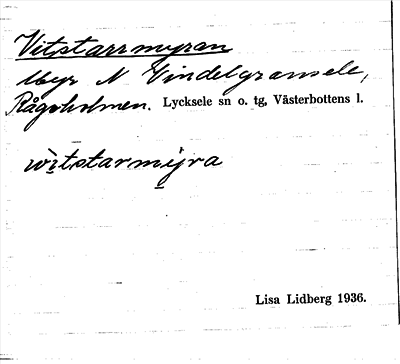 Vitstarrmyran
Myr N Vindelgransele,
Rågoholmen. Lycksele sn o. tg, Västerbottens l.
wìtstarmyra
Lisa Lidberg 1936.